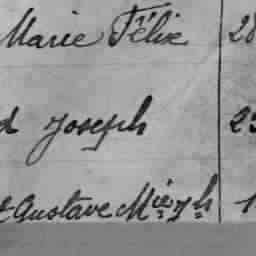 Marie Félix 28
d Joseph 23
t Gustave Mie Jh 1